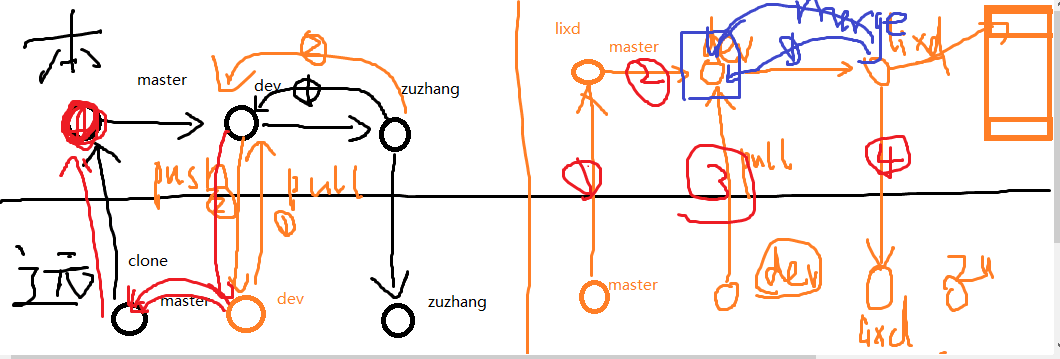 本
master
dev
zuzhang
①
②
push
②
pull
①
远
clone
master
dev
zuzhang
lixd
master
②
dev
merge
lixd
①
3
pull
4
master
dev
lixd
zu